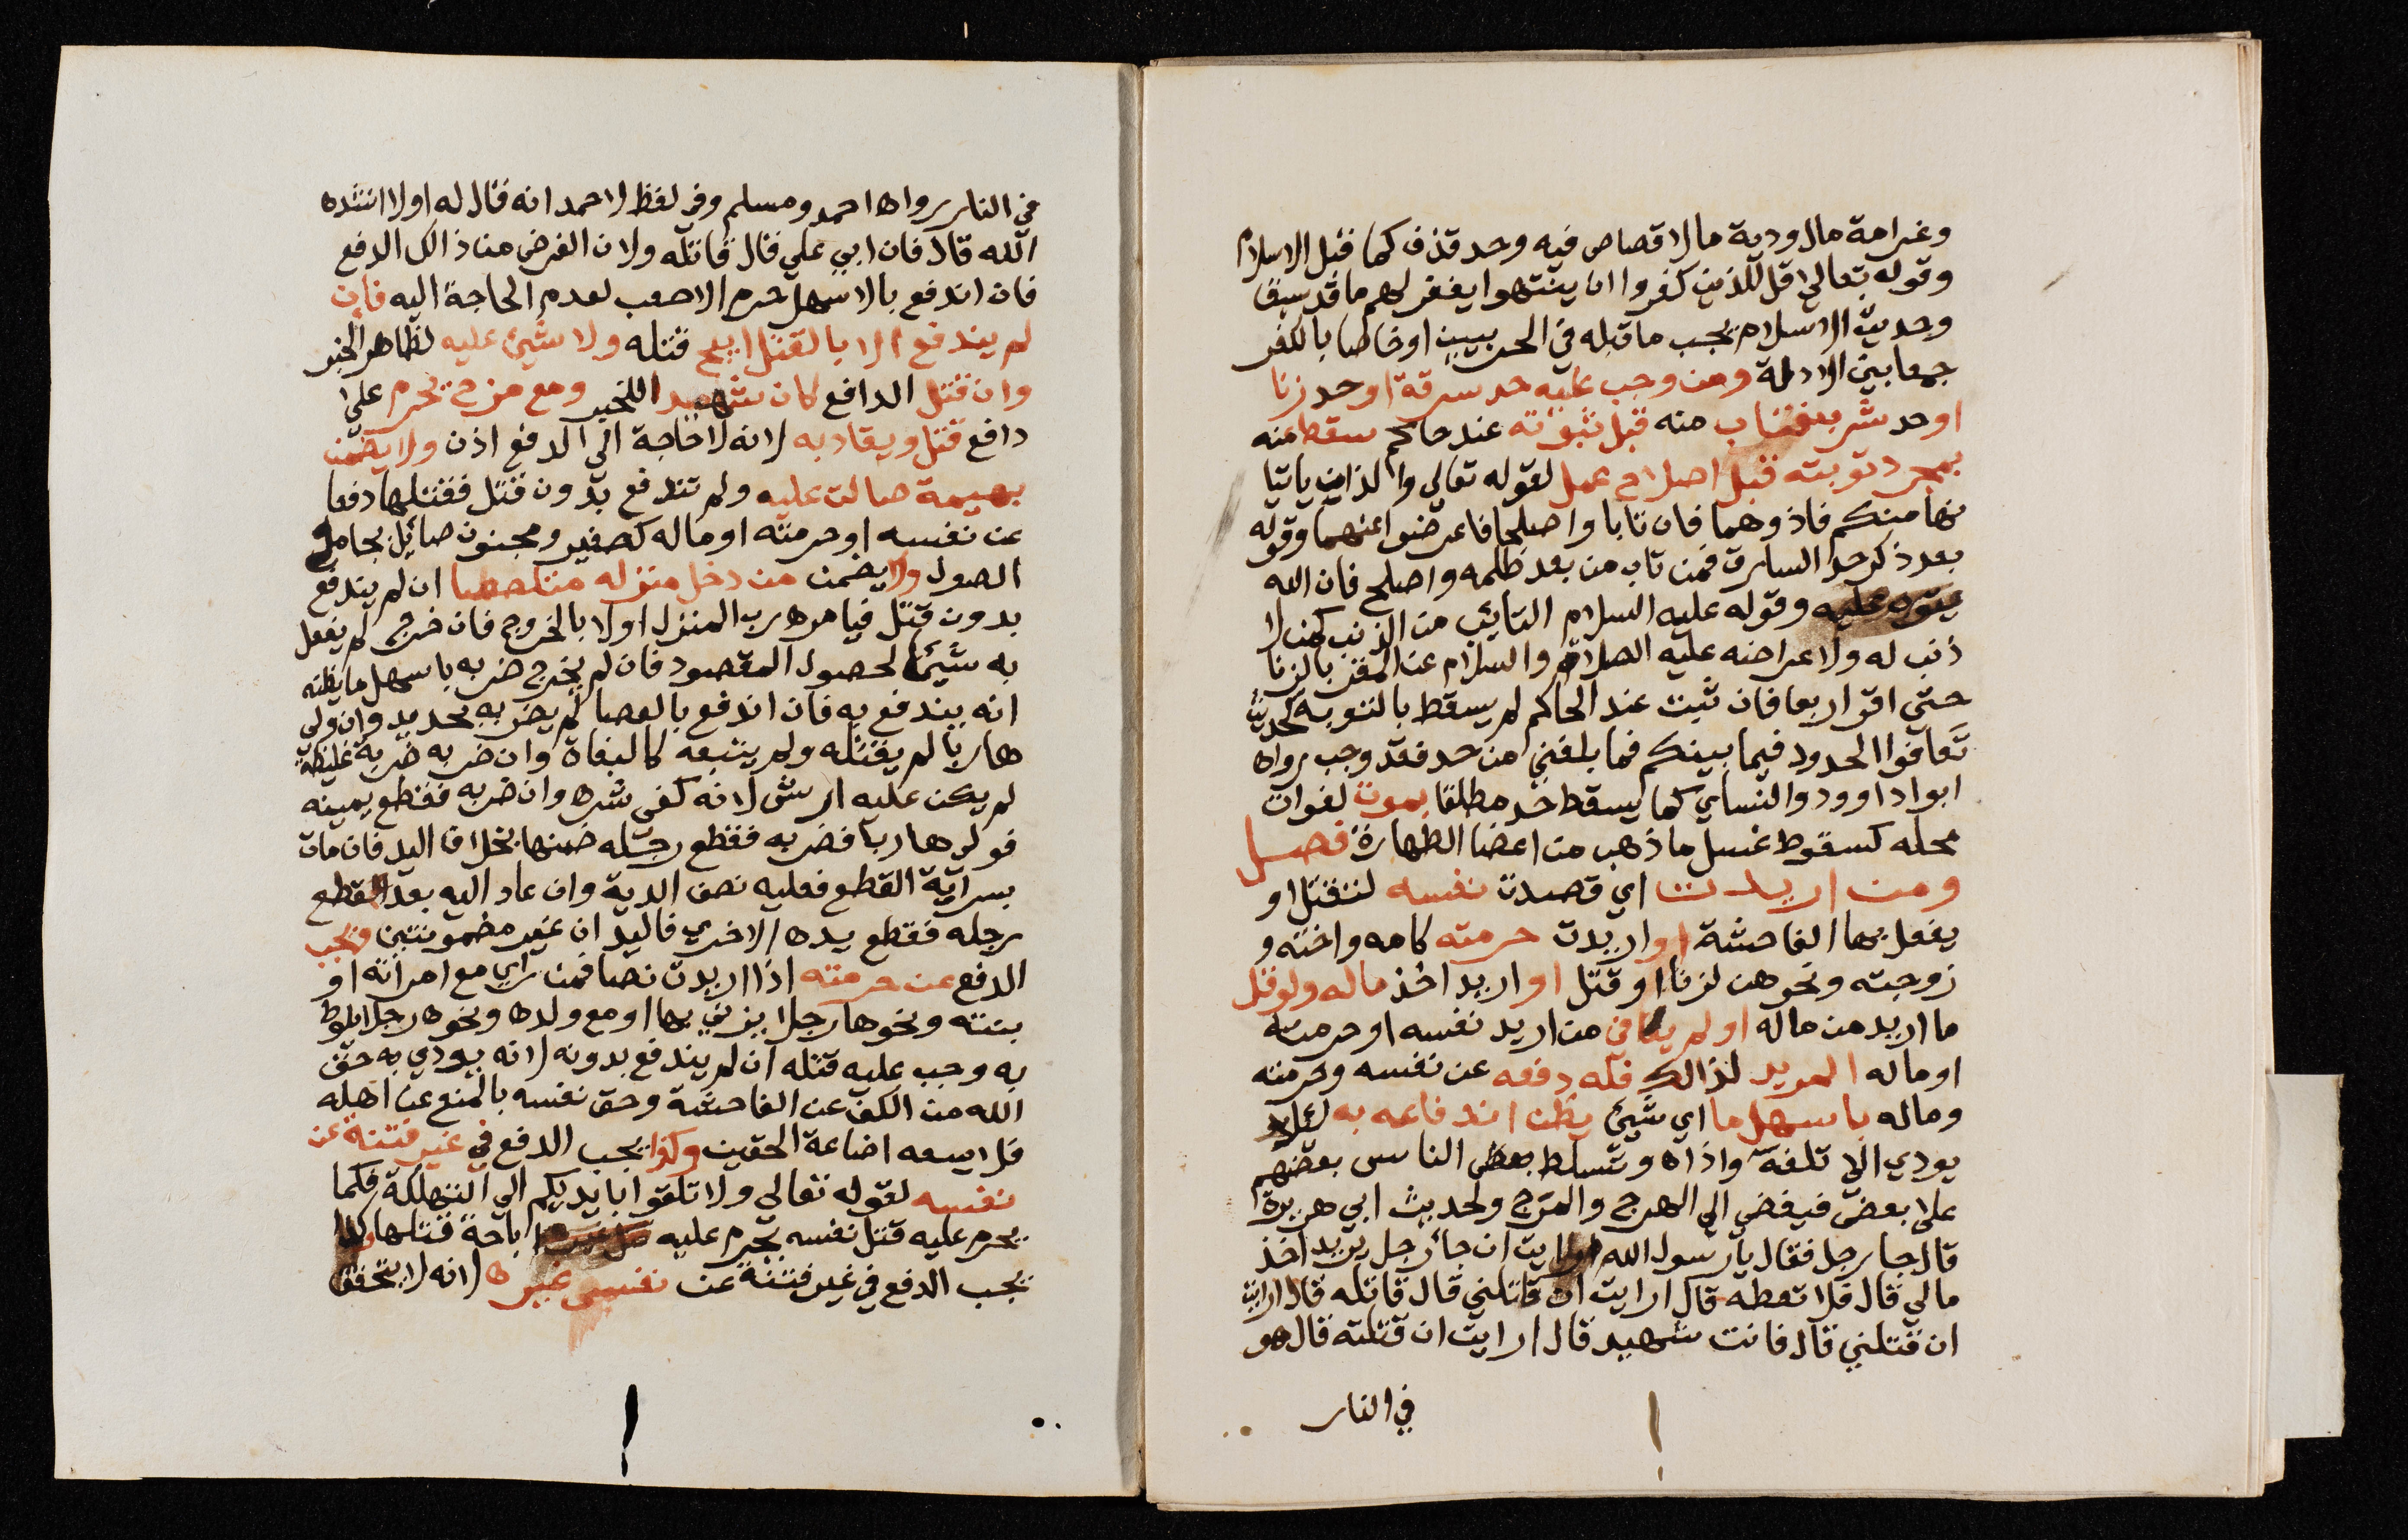 وغرامة مال ودية مالا قصاص فيه وحد قذف كما قبل الاسلام
وقوله تعالي قل للذين كفروا ان ينتهوا يغفر لهم ما قد سبق
وحديث الاسلام يجب ما قبله في الحربيين او خاصا بالكفر
جمعا بين الادلة ومن وجب عليه حد سرقة او حد زنا
او حد شرب فتاب منه قبل ثبوته عند حاكم سقط عنه
بمجرد توبته قبل اصلاح عمل لقوله تعالي والذان ياتيا
نها منكم فاذوهما فان تابا واصلحا فاعرضوا عنهما وقوله
بعد ذكر حد السارق فمن تاب من بعد ظلمه واصلح فان الله
يتوب عليه وقوله عليه السلام التايب من الذنب كمن لا
ذنب له ولاعراضه عليه الصلاة والسلام عن المقر بالزنا
حتي اقر اربعا فان ثبت عند الحاكم لم يسقط بالتوبة لحديث
تعافوا الحدود فيما بينكم فما بلغني من حد فقد وجب رواه
ابواداوود والنساي كما يسقط حد مطلقا بموت لفوات
محله كسقوط غسل ما ذهب من اعضا الطهارة فصل
ومن اريدت اي قصدت نفسه لتقتل او
يفعل بها الفاحشة او اريدت حرمته كامه واخته و
زوجته ونحوهن لزنا او قتل او اريد اخذ ماله ولو قل
ما اريد من ماله او لم يكافي من اريد نفسه او حرمته
او ماله المريد لذالك فله دفعه عن نفسه وحرمته
وماله باسهل ما اي شيئ يظن اندفاعه به لئلا
يودي الي تلفه واذاه وتسلط بعض الناس بعضهم
علي بعض فيفضي الي الهرج والمرج ولحديث ابي هريرة
قال جا رجل فقال يارسول الله ارايت ان جأ رجل يريد اخذ
مالي قال فلا تعطه قال ارايت ان قاتلني قال قاتله قال ارايت
ان قتلني قال فانت شهيد قال ارايت ان قتلته قال هو
في النار
في النار رواه احمد ومسلم وفي لفظ لاحمد انه قال له اولا انشده
الله قال فان ابي علي قال قاتله ولان الغرض من ذالك الدفع
فان اندفع بالاسهل حرم الاصعب لعدم الحاجة اليه فان
لم يندفع الا بالقتل ابيح قتله ولا شيئ عليه لظاهر الخبر
وان قتل الدافع كان شهيدا للخبر ومع مزح يحرم علي
دافع قتل ويقاد به لانه لا حاجة الي الدفع اذن ولا يضمن
بهيمة صالت عليه ولم تندفع بدون قتل فقتلها دفعا
عن نفسه او حرمته او ماله كصغير ومجنون صائل بجامع
الصول ولا يضمن من دخل منزله متلصصا ان لم يندفع
بدون قتل فيامره رب المنزل اولا بالخروج فان خرج لم يفعل
به شيئا لحصول المقصود فان لم يخرج ضربه باسهل ما يظنه
انه يندفع به فان اندفع بالعصا لم يضربه بحديد وان ولي
هاربا لم يقتله ولم يتبعه كالبغاة وان ضربه ضربة غليظة
لم يكن عليه ارش لانه كفي شره وان ضربه فقطع يمينه
فولي هاربا فضربه فقطع رجله ضمنها بخلاف اليد فان مات
بسراية القطع فعليه نصف الدية وان عاد اليه بعد قطع
رجله فقطع يده الاخري فاليدان غير مضمونتين ويجب
الدفع عن حرمته اذا اريدت نصا فمن راي مع امراته او
بنته ونحوها رجلا يزني بها او مع ولده ونحوه رجلا يلوط
به وجب عليه قتله ان لم يندفع بدونه لانه يودي به حق
الله من الكف عن الفاحشة وحق نفسه بالمنع عن اهله
فلا يسعه اضاعة الحقين وكذا يجب الدفع في غير فتنة عن
نفسه لقوله تعالي ولا تلقوا بايديكم الي التهلكة فكما
يحرم عليه قتل نفسه يحرم عليه اباحة قتلها
يجب الدفع في غير فتنة عن نفس غيره لانه لا يتحقق